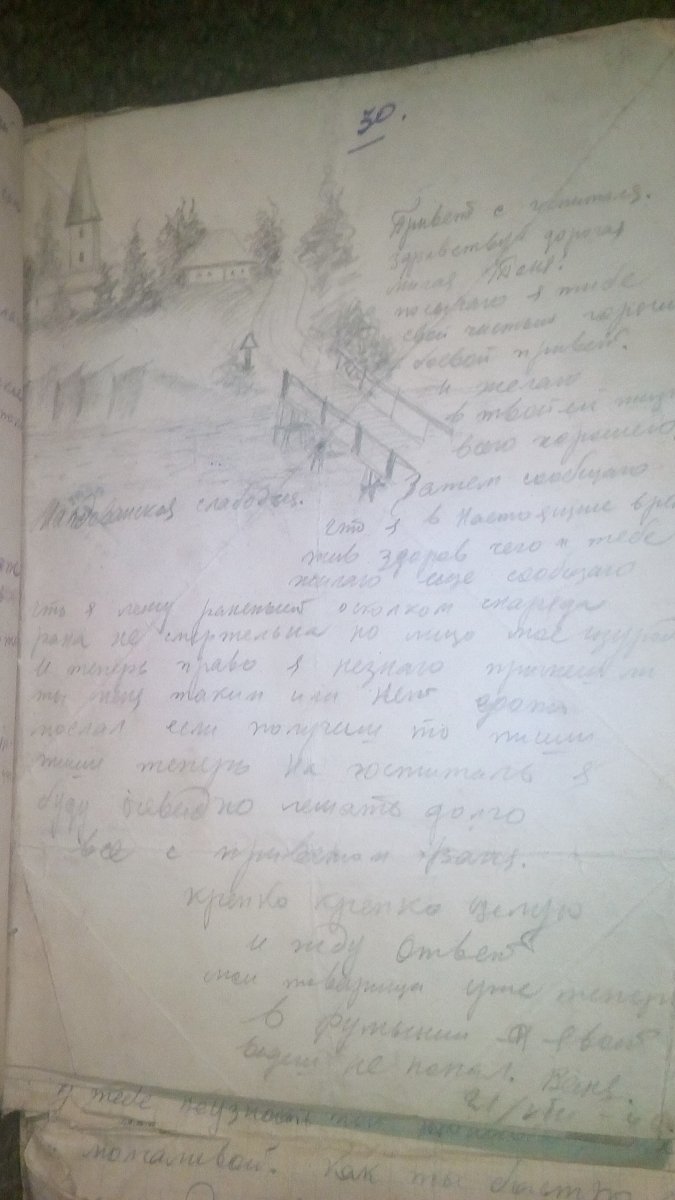 30.
Привет с госпиталя.
Здравствуй дорогая
милая Таня!
посылаю я тибе
свой чистый горячий
боевой привет.
и желаю
в твоей жизни
всего хорошего
Затем сообщаго
слабодца.
что я в настоящие время
жив здоров чего и тебе
жилаю еще сообщаю
что я лежу раненый осколком снаряда
рана не смертельна но лицо мое
и теперь право я незнаю примеш ли
ты меня таким или нет фото
послал если получиш то пиши
пиши теперь на госпиталь я
буду лежать долго
все с приветом Ваня.
крепко крепко целую
и жду ответ
мои товарища уже теперь
в румынии А я вот
видиш не попал. Ваня.
21/
тебе неузнать
Как ты